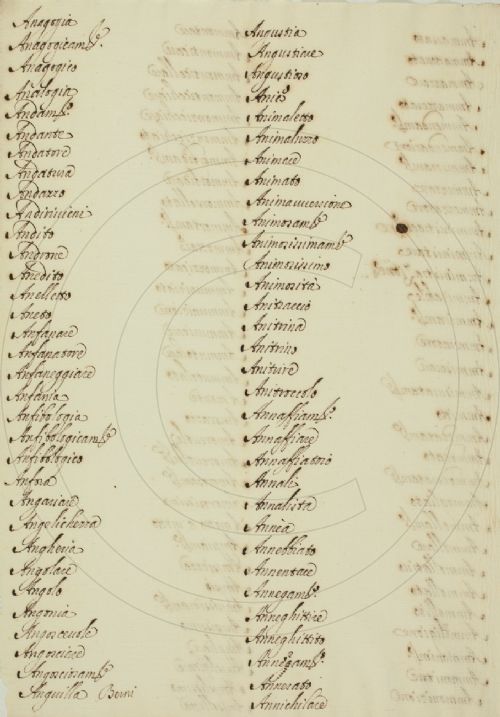 Anagogia
Anagogicamᵉ.
Anagogico
Analogia
Andamᵒ.
Andante
Andatore
Andatura
Andazzo
Andirivieni
Andito
Androne
Anedito
Anelletto
Aneto
Anfanare
Anfanatore
Anfaneggiare
Anfania
Anfibologia
Anfibologicamᵉ.
Anfibologico
Anfora
Angariare
Angelichezza
Angheria
Angolare
Angolo
Angonia
Angoscevole
Angosciare
Angosciosamᵉ.
Anguilla Berni
Angustia
Angustiare
Angustioso
Animaletto
Animaluzzo
Animare
Animato
Animavversione
Animosamᵉ.
Animosissimamᵉ.
Animosissimo
Animosità
Anitraccio
Anitrina
Anitrino
Anitrire
Anitroccolo
Annaffiamᵒ.
Annaffiare
Annaffiatoio
Annali
Annalista
Annebbiato
Annegamᵒ.
Anneghittire
Anneghittito
Annerato
Annichilare